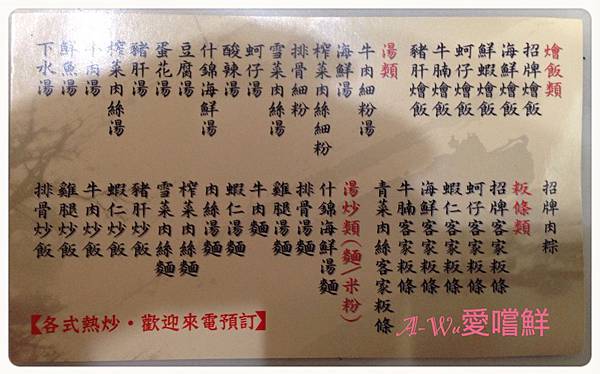 燴飯類
招牌燴飯
海鮮燴飯
鮮蝦燴飯
蚵仔燴飯
牛腩燴飯
豬肝燴飯
湯類
牛肉細粉湯
海鮮湯
榨菜肉絲細粉
排骨細粉
雪菜肉絲湯
蚵仔湯
酸辣湯
什錦海鮮湯
豆腐湯
蛋花湯
豬肝湯
榨菜肉絲湯
牛肉湯
鮮魚湯
下水湯
招牌肉粽
粄條類
招牌客家粄條
蚵仔客家粄條
蝦仁客家粄條
海鮮客家粄條
牛腩客家粄條
青菜肉絲客家粄條
湯炒類(麵/米粉)
什錦海鮮湯麵
排骨湯麵
雞腿湯麵
牛肉麵
蝦仁湯麵
肉絲湯麵
榨菜肉絲麵
雪菜肉絲麵
豬肝炒飯
蝦仁炒飯
牛肉炒飯
雞腿炒飯
排骨炒飯
【各式熱炒·歡迎來電預訂】
A-Wu愛嚐鮮